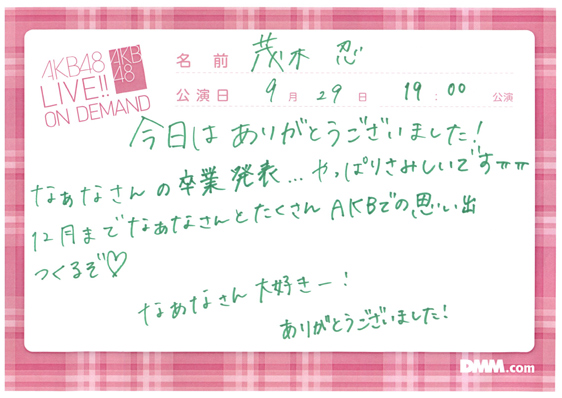 AKB48
LIVE!!
ON DEMAND
AKB
48
名前 茂木 忍
公演日 9月29日 19:00 公演
今日は ありがとうございました!
なぁなさんの卒業発表...やっぱりさみしいですㅠㅠ
12月までなぁなさんとたくさんAKBでの思い出
つくるぞ♡
なぁなさん大好きー!
ありがとうございました!
DMM.com